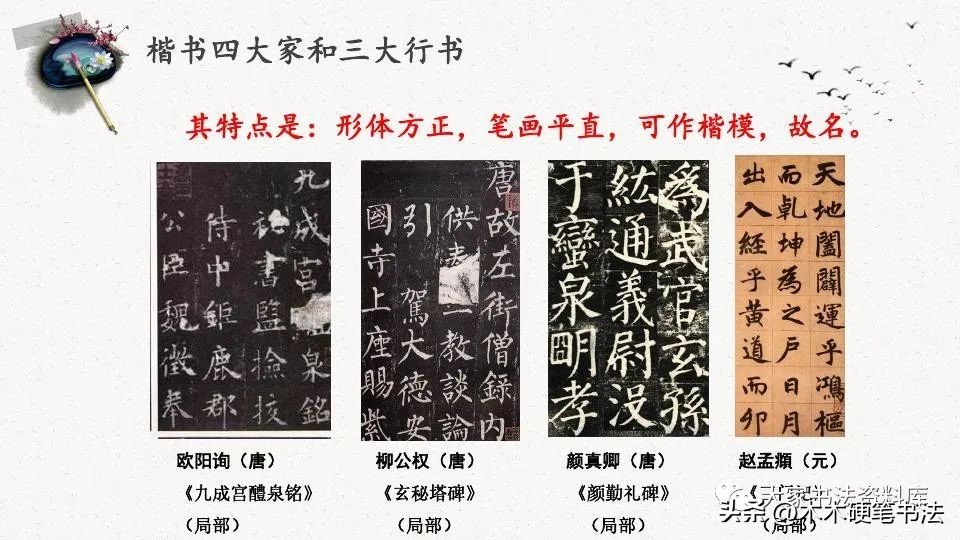 楷书四大家和三大行书
其特点是：形体方正，笔画平直，可作楷模，故名。
九成宫醴泉銘
秘書監撿挍
侍中鉅鹿郡
公臣魏徵奉
唐故左街僧錄内
供奉三教談論
引駕大德安
國寺上座賜紫
為武官玄孫
紘通義尉没
于蠻泉明孝
天地闔闢運乎鴻樞
而乹坤為之戶日月
出入經乎黃道而卯
欧阳询（唐）
《九成宫醴泉铭》
（局部）
柳公权（唐）
《玄秘塔碑》
（局部）
颜真卿（唐）
《颜勤礼碑》
（局部）
赵孟頫（元）
（局部）
大家书法资料库
头条@木木硬笔书法